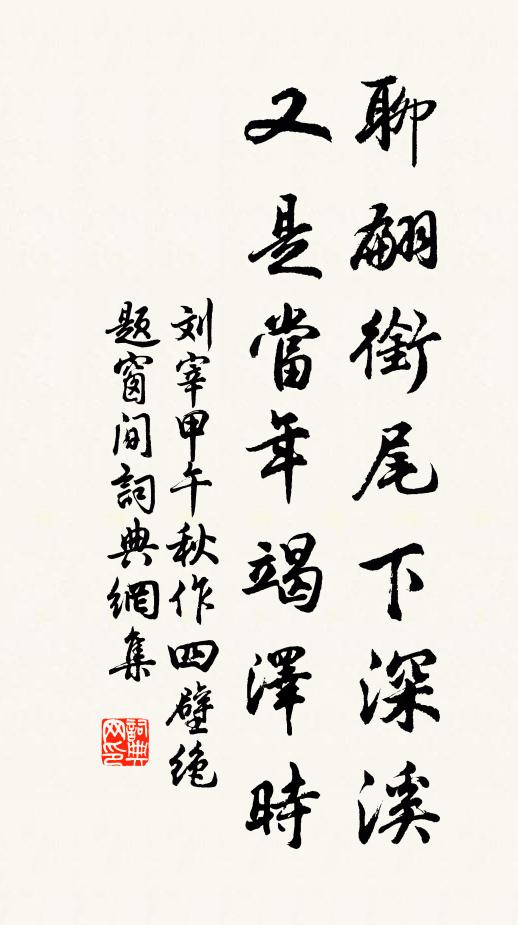 聊翩銜尾下深溪
又是當年竭澤時
刘宰甲午秋作四壁绝
题窗间詞典網集
詞典网印